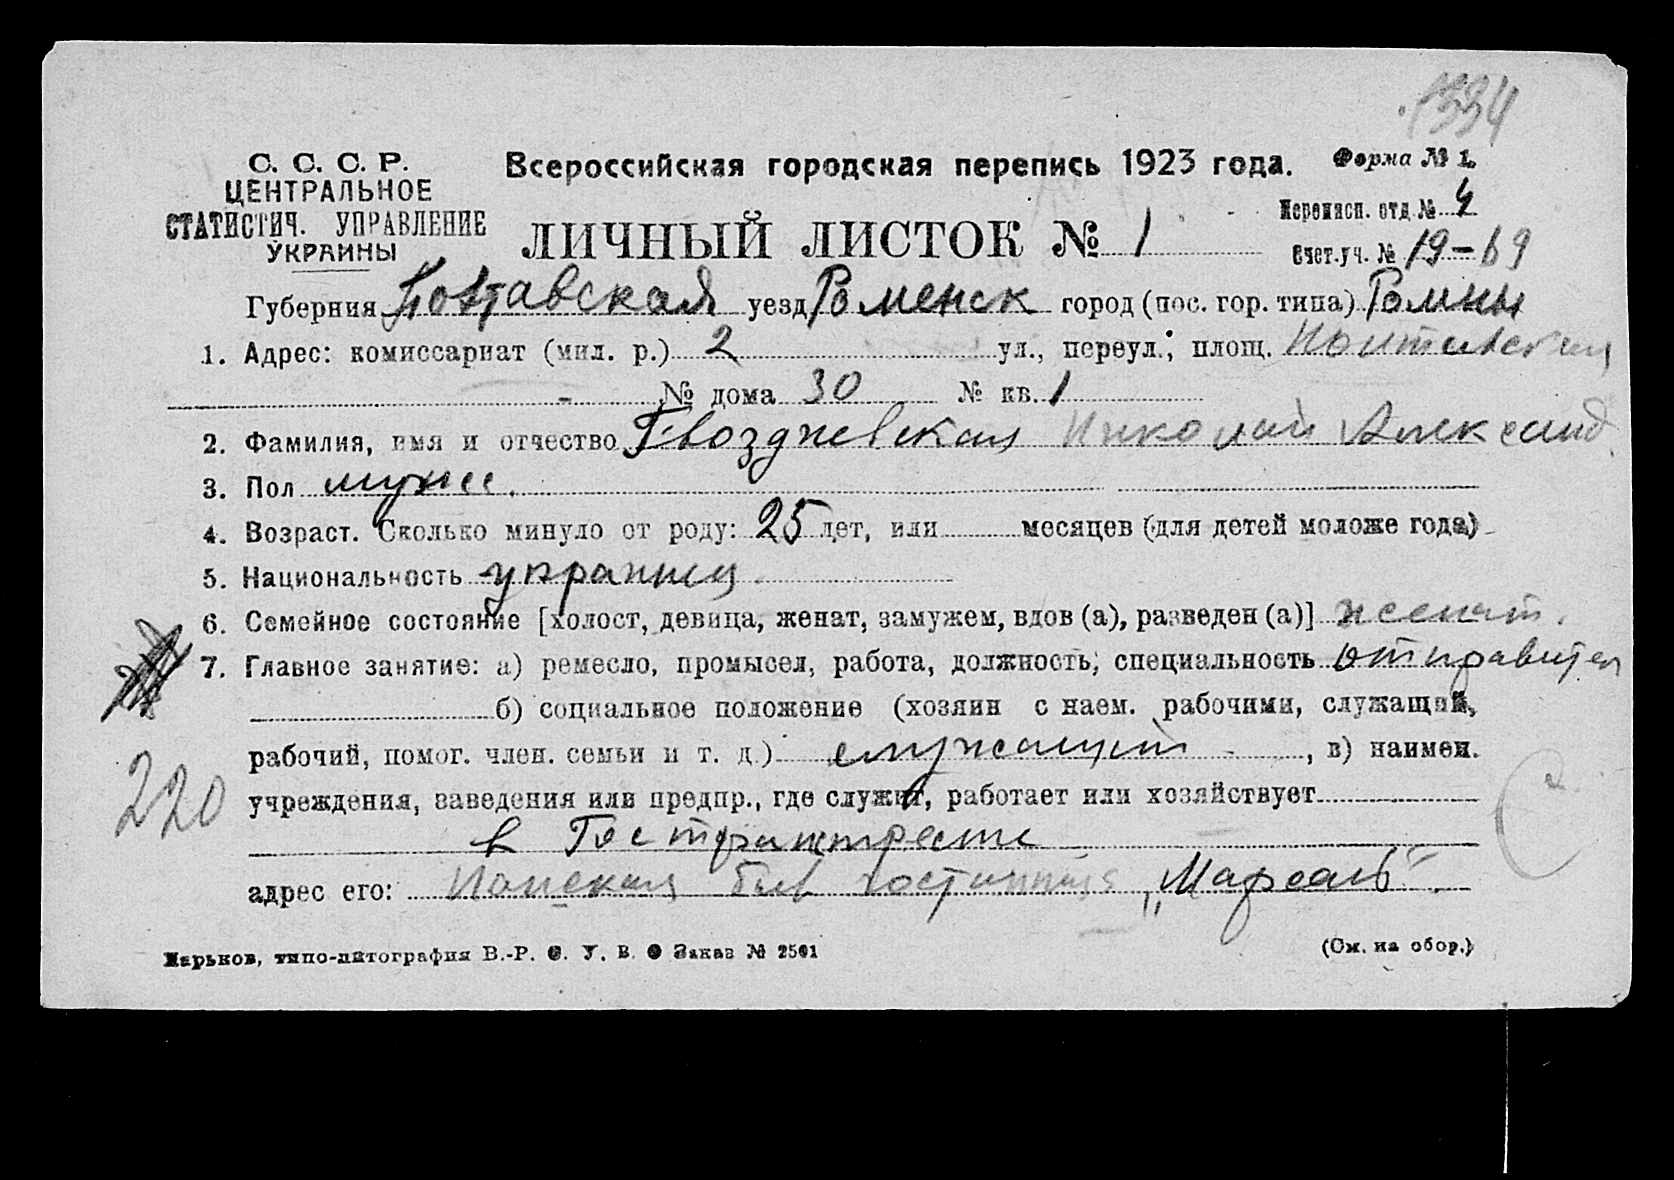 1334
С. С. С. Р.
ЦЕНТРАЛЬНОЕ
СТАТИСТИЧ. УПРАВЛЕНИЕ
УКРАИНЫ
Всероссийская городская перепись 1923 года.
Форма № 1.
ЛИЧНЫЙ ЛИСТОК № 1
Переписн. отд. № 4
Счет. уч. № 19-69
Губерния Полтавская уезд Роменск город (пос. гор. типа) Ромны
1. Адрес: комиссариат (мил. р.) 2 ул., переул., площ.
№ дома 30 № кв. 1
2. Фамилия, имя и отчество Гвоздневская Николай Александ
3. Пол мужс.
4. Возраст. Сколько минуло от роду: 25 лет, или месяцев (для детей моложе года)
5. Национальность
6. Семейное состояние [холост, девица, женат, замужем, вдов (а), разведен (а)] женат.
7. Главное занятие: а) ремесло, промысел, работа, должность, специальность отправител
б) социальное положение (хозяин с наем. рабочими, служащий,
рабочий, помог. член. семьи и т. д.) служащий, в) наимен.
220
учреждения, заведения или предпр., где служит, работает или хозяйствует
в
адрес его: быв гостинница „Марсаль“.
Харьков, типо-литография В.-Р. С. У. В. О Заказ № 2501
(См. на обор.)